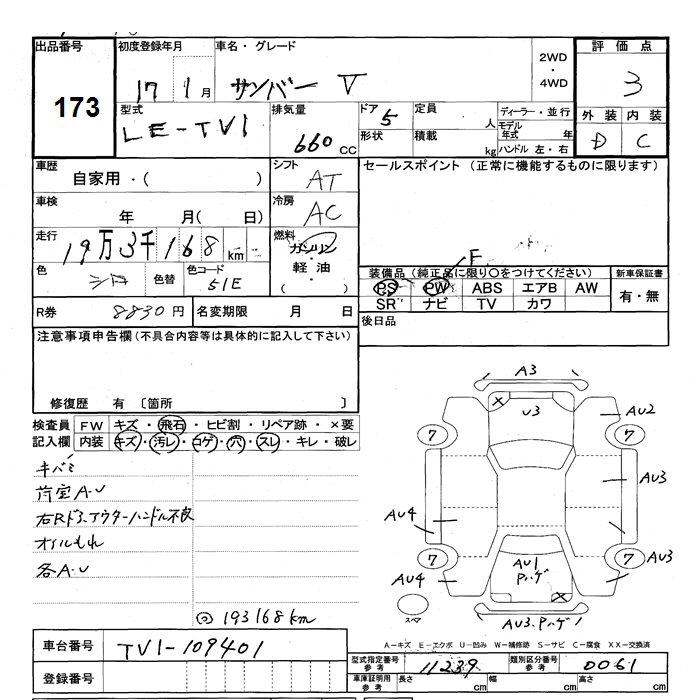 出品番号
173
初度登録年月
17 1月
車名・グレード
サンバー V
2WD
・
4WD
評価点
3
型式
LE-TV1
排気量
660 CC
ドア 5
形状
定員 人
積載 kg
ディーラー・並行
モデル年式 年
ハンドル 左・右
外装 内装
D C
車歴
自家用・( )
シフト
AT
セールスポイント (正常に機能するものに限ります)
車検
年 月( 日)
冷房
AC
走行
19万3千168km
燃料
ガソリン
・
軽油
( )
色
シロ
色替
色コード
51E
F
装備品 (純正品に限り○をつけてください)
新車保証書
PS PW ABS エアB AW
SR ナビ TV カワ
有・無
R券 8830円
名変期限 月 日
後日品
注意事項申告欄(不具合内容等は具体的に記入して下さい)
修復歴 有 〔箇所 〕
検査員 FW キズ・飛石・ヒビ割・リペア跡・×要
記入欄 内装 キズ・汚レ・コゲ・穴・スレ・キレ・破レ
キバミ
荷室A・U
右Rドアアウターハンドル不良
オイルもれ
各A・U
◎ 193168km
A3
U3
AU2
7
7
AU3
AU4
AU1
Pハゲ
7
7
AU3
AU4
スペア
AU3.Pハゲ
A-キズ E-エクボ U-凹み W-補修跡 S-サビ C-腐食 XX-交換済
車台番号 TV1-109401
型式指定番号
参考
11239
類別区分番号
参考
0061
登録番号
車庫証明用
参考
長さ cm
幅 cm
高さ cm